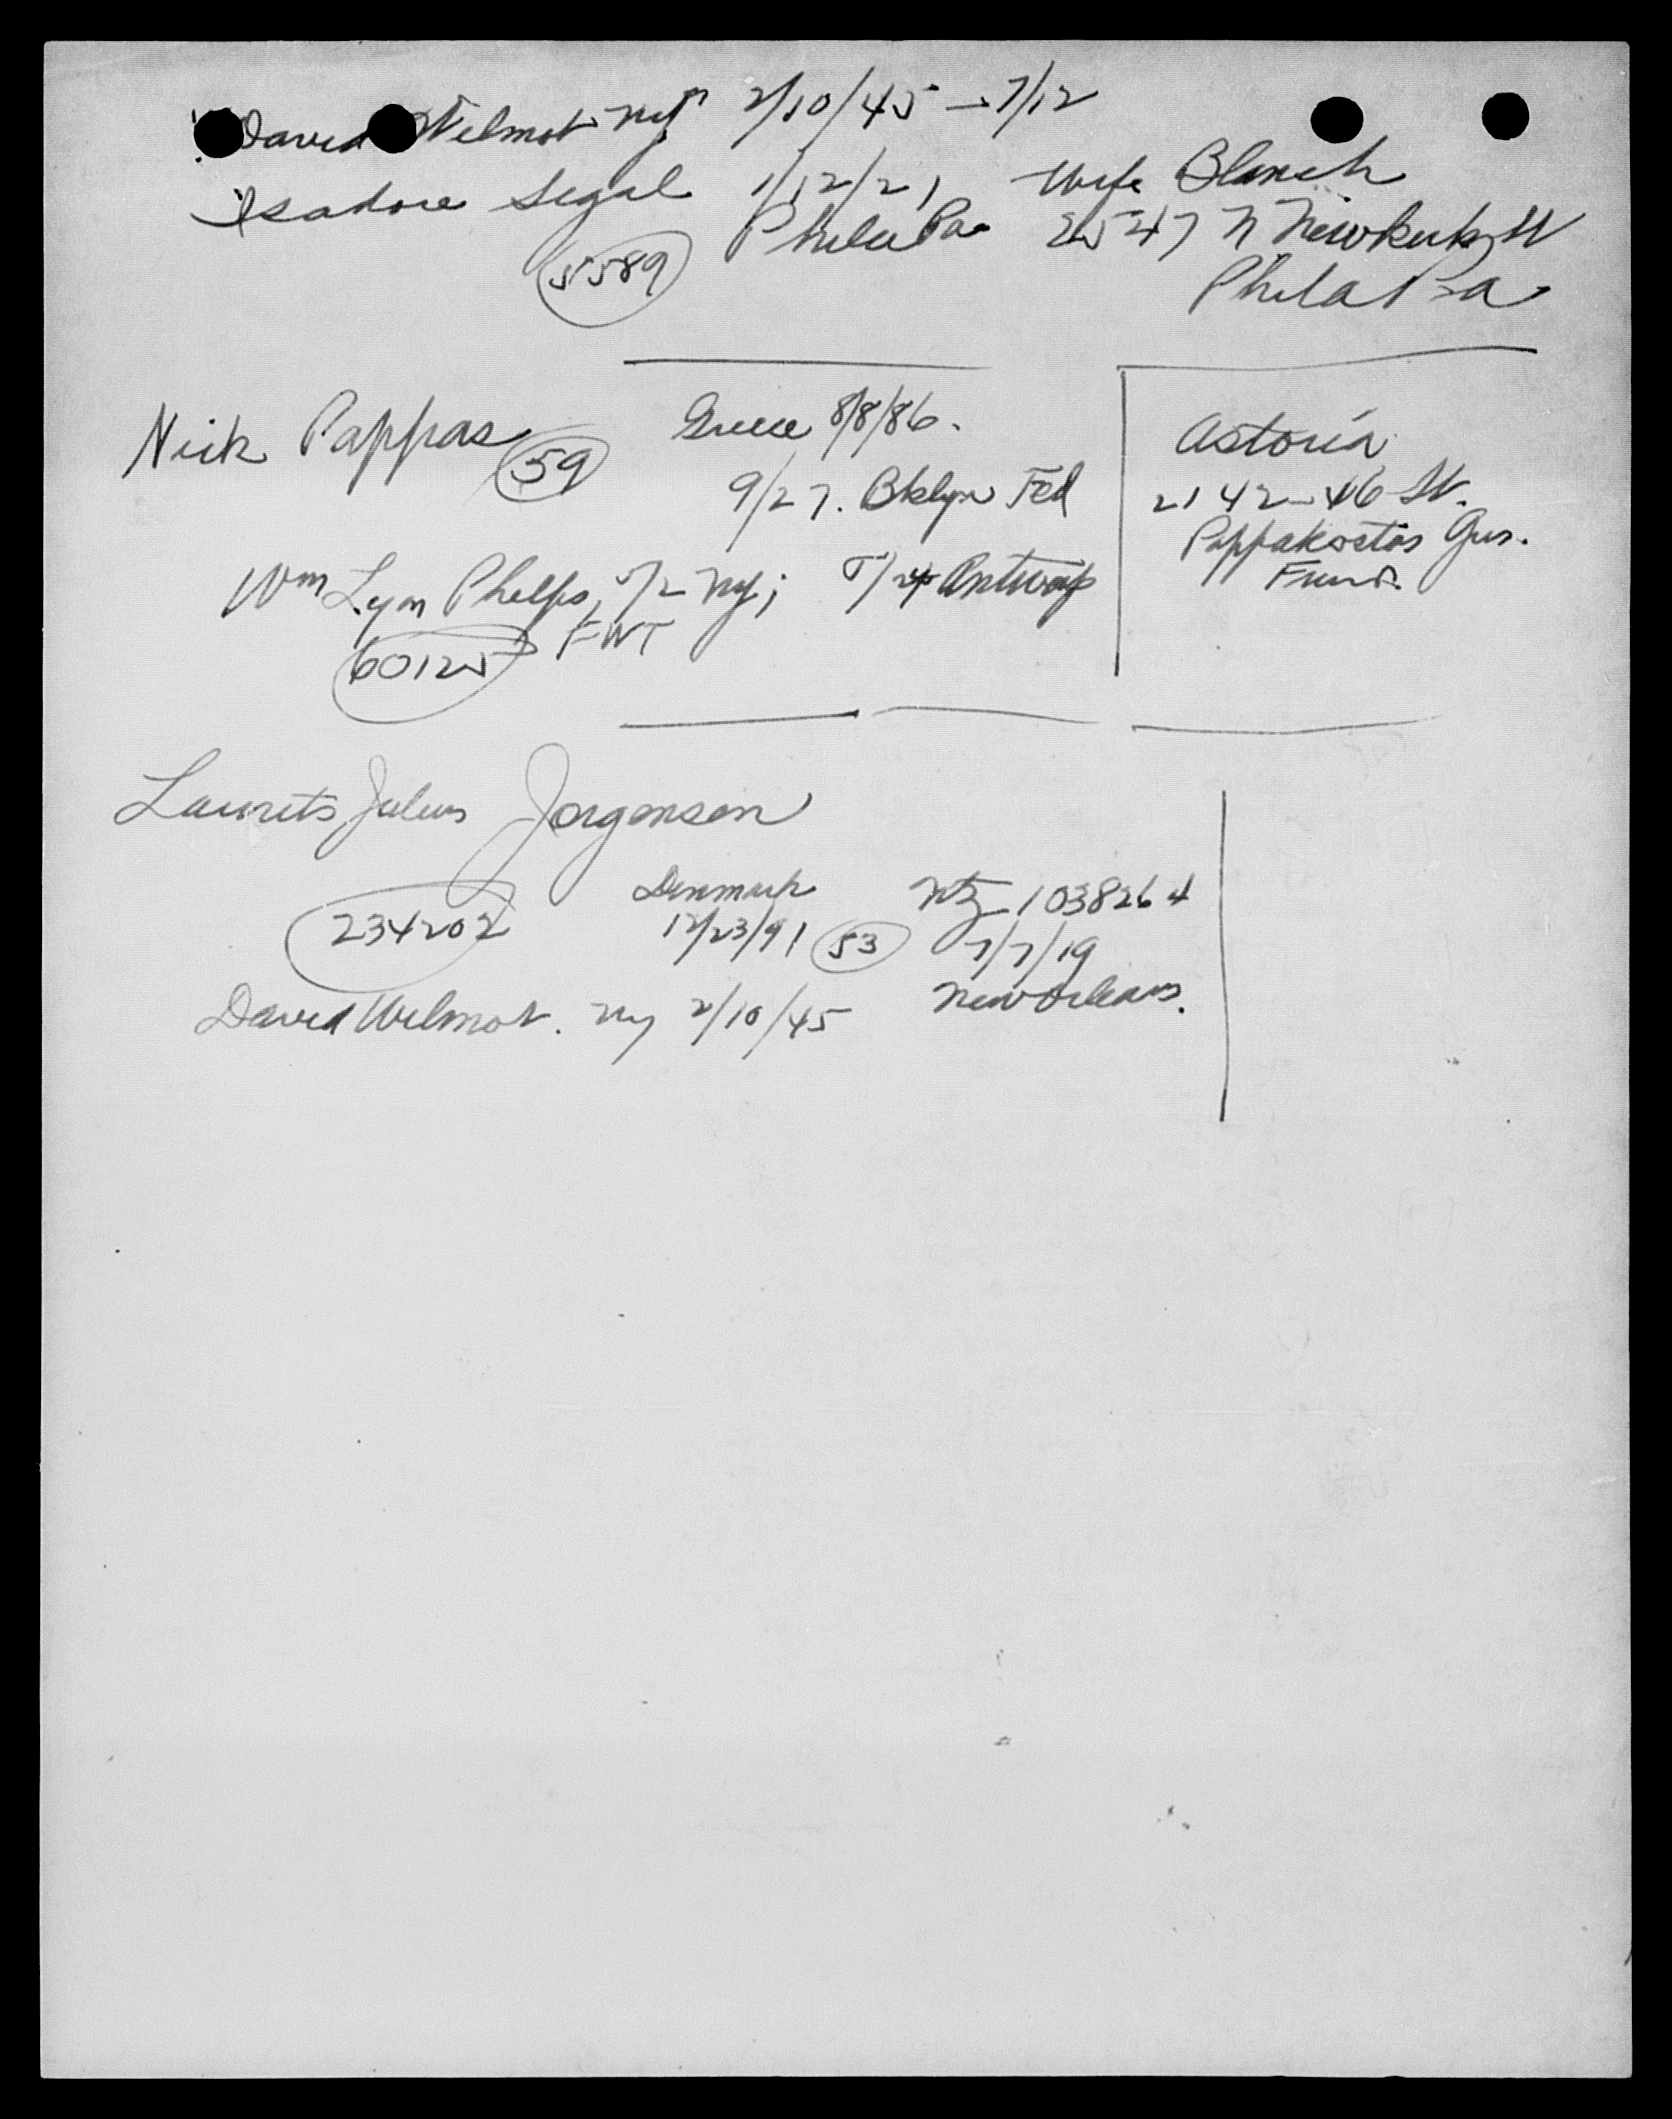 David Wilmot NY 2/10/45 - 7/12
Isadore Segal 1/12/21 Wife Blanch
Phila Pa 2547 N Newkirk St
5589
Phila Pa
Nick Pappas 59
Greece 8/8/86.
9/27. Bklyn Fed
Astoria
2142-46 St.
Pappakostas Gus.
Friend.
Wm Lyon Phelps, 5/2 NY; 5/24 Antwerp
FWT
60125
Laurits Julius Jorgensen
234202
Denmark
12/23/91 53
Ntz 1038264
7/7/19
New Orleans.
David Wilmot. NY 2/10/45